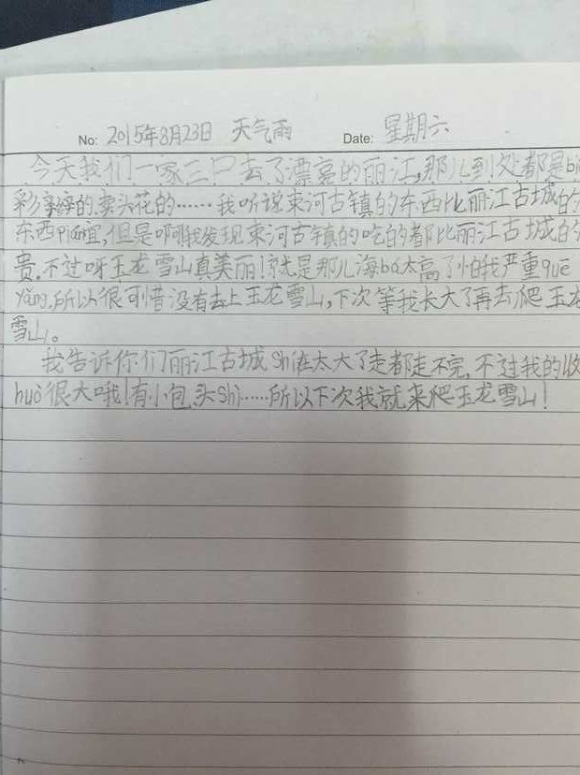 No: 2015年8月23日 天气雨 Date: 星期六
今天我们一家三口去了漂亮的丽江,那儿到处都是
彩 的.卖头花的……我听说束河古镇的东西比丽江古城的
东西 宜,但是啊我发现束河古镇的吃的都比丽江古城的
贵.不过呀玉龙雪山真美丽!就是那儿海bá太高了怕我严重quē
yǎng,所以很可惜没有去上玉龙雪山,下次等我长大了再去爬玉龙
雪山。
我告诉你们丽江古城shí在太大了走都走不完,不过我的收
huò很大哦!有小包,头Shì……所以下次我就来爬玉龙雪山!